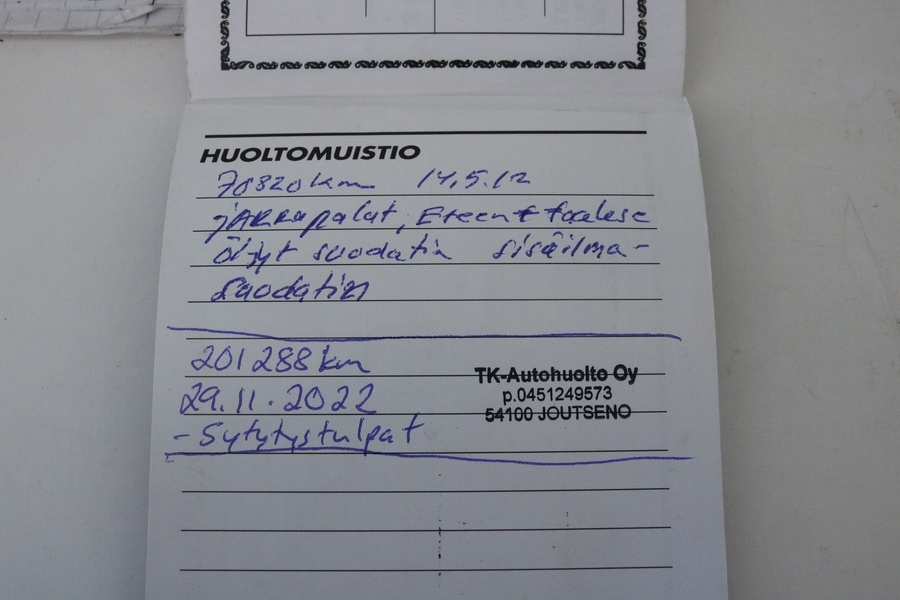 HUOLTOMUISTIO
70820km 14.5.12
jARRupalat, Eteen + taakse
öljyt suodatin sisäilma-
suodatin
201288km
29.11.2022
-Sytytystulpat
TK-Autohuolto Oy
p.0451249573
54100 JOUTSENO